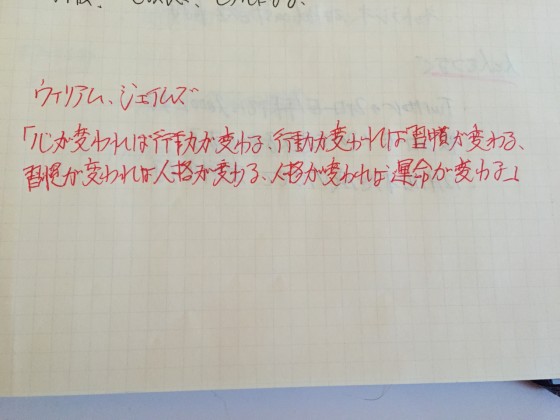 ウィリアム、ジェイムズ
「心が変われば行動が変わる、行動が変われば習慣が変わる、
習慣が変われば人格が変わる、人格が変われば運命が変わる」